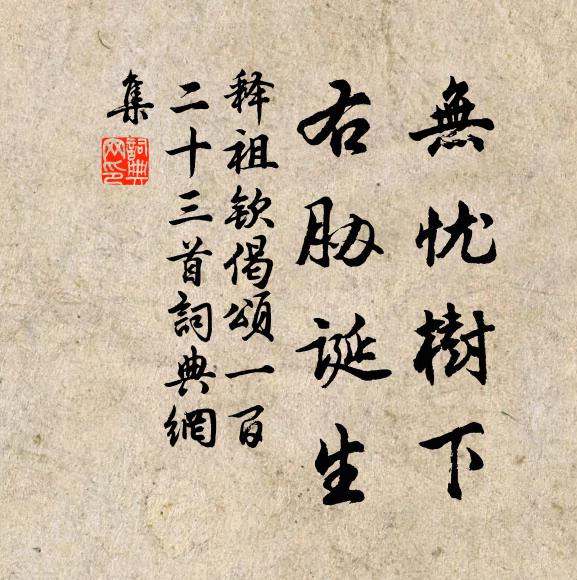 無忧樹下
右胁诞生
释祖钦偈頌一百
二十三首詞典網
集
詞典網印